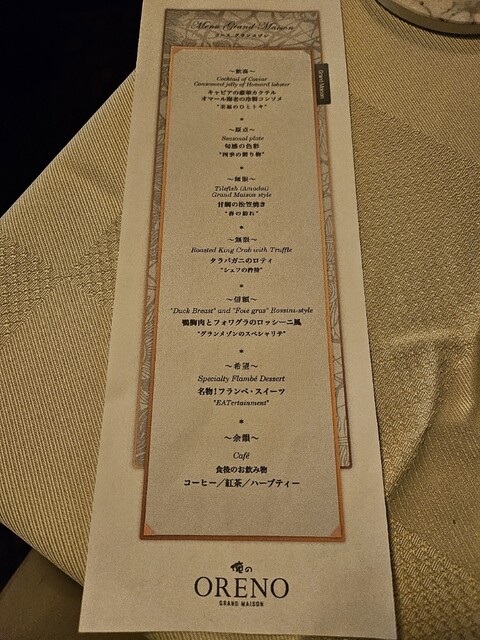 Menu Grand Maison
コース グランメゾン
Grand Maison
～歓喜～
Cocktail of Caviar
Consommé jelly of Homard lobster
キャビアの豪華カクテル
オマール海老の冷製コンソメ
"至福のひととき"
*
～原点～
Seasonal plate
旬感の色彩
"四季の贈り物"
*
Tilefish (Amadai)
Grand Maison style
甘鯛の松笠焼き
"春の訪れ"
*
～無限～
Roasted King Crab with Truffle
タラバガニのロティ
"シェフの矜持"
*
～信頼～
"Duck Breast" and "Foie gras" Rossini-style
鴨胸肉とフォワグラのロッシーニ風
"グランメゾンのスペシャリテ"
*
～希望～
Specialty Flambé Dessert
名物！フランベ・スイーツ
"EATertainment"
*
～余韻～
Café
食後のお飲み物
コーヒー／紅茶／ハーブティー
俺の
ORENO
GRAND MAISON